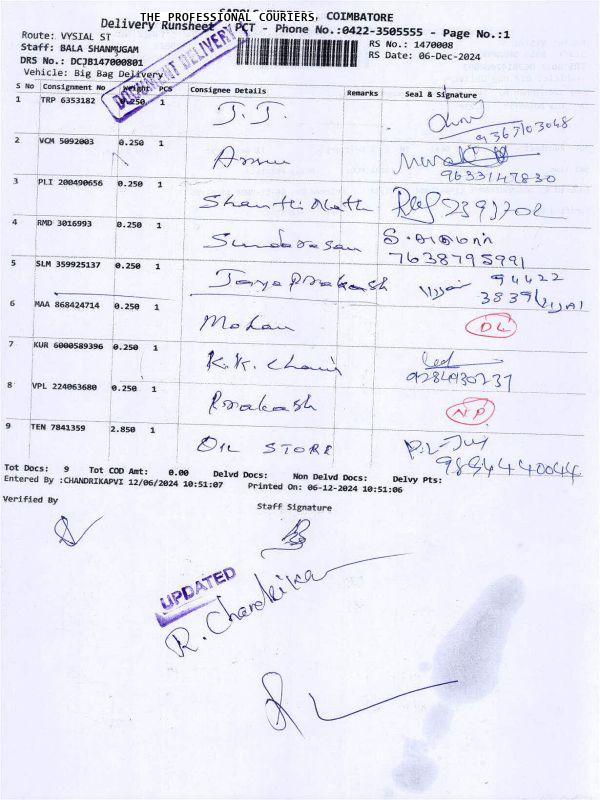 THE PROFESSIONAL COURIERS, COIMBATORE
Delivery Runsheet - PCT - Phone No.:0422-3505555 - Page No.:1
Route: VYSIAL ST
RS No.: 1470008
Staff: BALA SHANMUGAM
RS Date: 06-Dec-2024
DRS No.: DCJB147000801
Vehicle: Big Bag Delivery
DOCUMENT DELIVERY
S No Consignment No Weight PCS Consignee Details Remarks Seal & Signature
1 TRP 6353182 0.250 1 J.J.
9367103048
2 VCM 5092003 0.250 1 Ammu
9633147830
3 PLI 200490656 0.250 1 Shanthi Nath
4 RMD 3016993 0.250 1 Sundarasan
7638795991
5 SLM 359925137 0.250 1 Jaya Prakash
94422
6 MAA 868424714 0.250 1 Mohan DL
7 KUR 6000589396 0.250 1
9284930237
8 VPL 224063680 0.250 1 Prakash NP
9 TEN 7841359 2.850 1 OIL STORE
9894440044
Tot Docs: 9 Tot COD Amt: 0.00 Delvd Docs: Non Delvd Docs: Delvy Pts:
Entered By :CHANDRIKAPVI 12/06/2024 10:51:07 Printed On: 06-12-2024 10:51:06
Verified By
Staff Signature
UPDATED
R. Chandrika